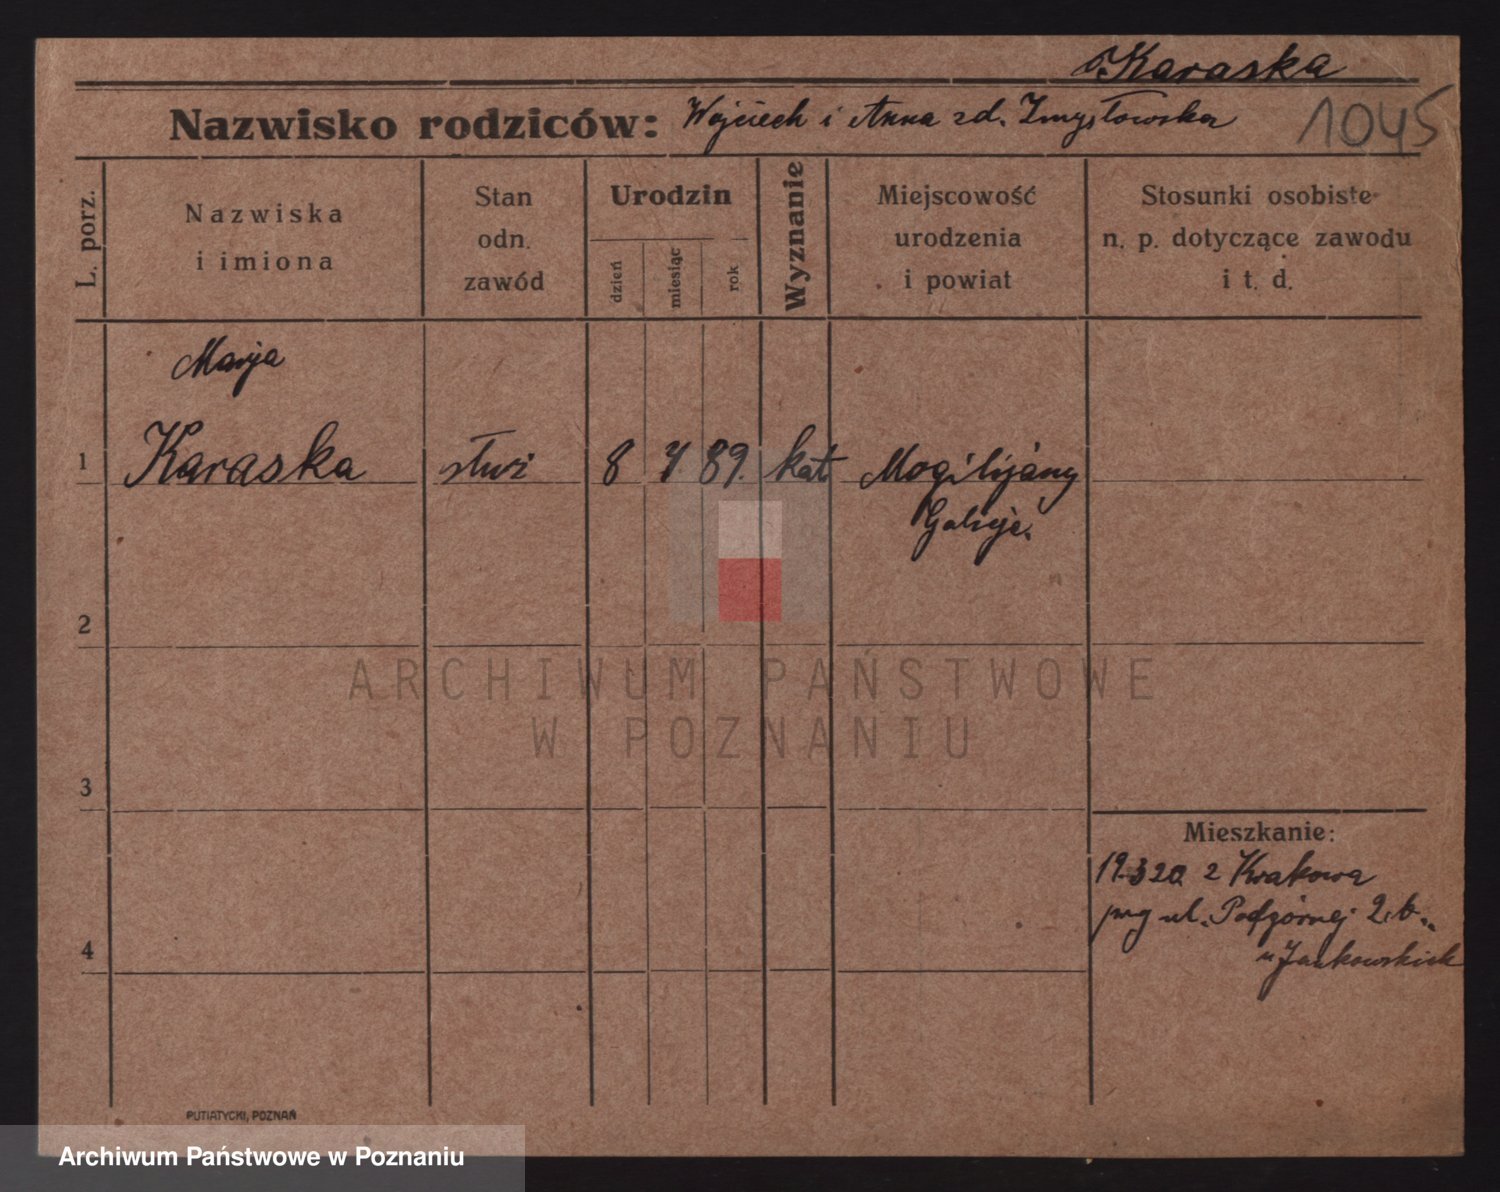 Karaska
Nazwisko rodziców: Wojciech i Anna zd. Zmysłowska
1045
L. porz.
Nazwiska
i imiona
Stan
odn.
zawód
Urodzin
dzień
miesiąc
rok
Wyznanie
Miejscowość
urodzenia
i powiat
Stosunki osobiste
n. p. dotyczące zawodu
i t. d.
Marja
1 Karaska służ 8 7 89. kat Mogilijány
Galicja.
2
ARCHIWUM PAŃSTWOWE
W POZNANIU
3
Mieszkanie:
19.3 20. z Krakowa
ul. Podgórnej 2.b.
u Jankowskich
4
PUTIATYCKI, POZNAŃ
Archiwum Państwowe w Poznaniu